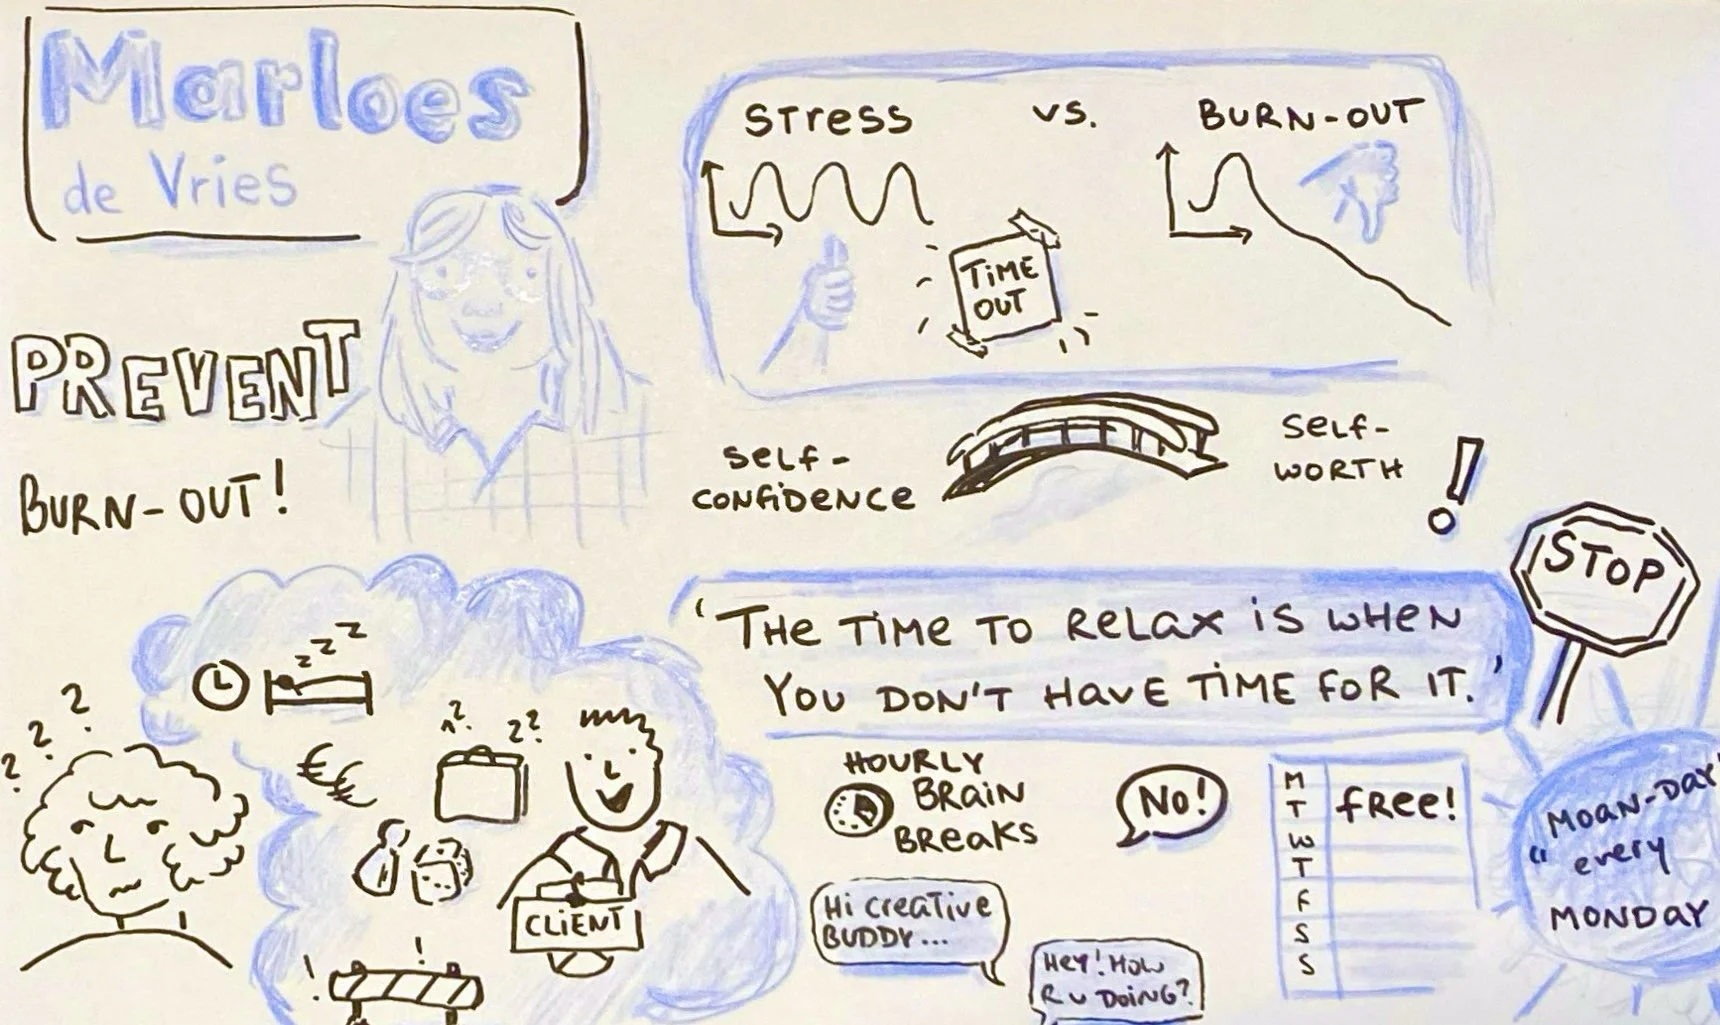 Marloes
de Vries
PREVENT
BURN-OUT!
STRESS vs. BURN-OUT
TIME
OUT
SELF-
CONFIDENCE
SELF-
WORTH
!
STOP
'THE TIME TO RELAX IS WHEN
YOU DON'T HAVE TIME FOR IT.'
? ? ?
z z z
€€€
??
??
CLIENT
! !
HOURLY
BRAIN
BREAKS
NO!
Hi CREATIVE
BUDDY...
HEY! HOW
R U DOING?
M
T
W
T
F
S
S
FREE!
"MOAN-DAY"
every
MONDAY